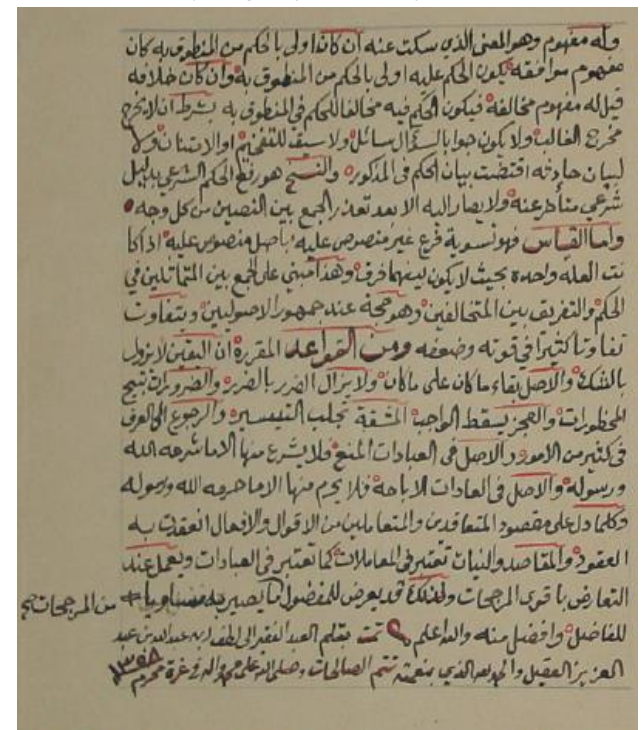 وله مفهوم وهو المعنى الذي سكت عنه ان كان اولى بالحكم من المنطوق به كان
مفهوم موافقه يكون الحكم عليه اولى بالحكم من المنطوق به وان كان خلافه
قيل له مفهوم مخالفة فيكون الحكم فيه مخالفا للحكم في المنطوق به بشرط ان لا يخرج
مخرج الغالب ولا يكون جوابا لسؤال سائل ولا سيق للتفخيم او الامتنان ولا
لبيان حادثه اقتضت بيان الحكم في المذكور والنسخ هو رفع الحكم الشرعي بدليل
شرعي متأخر عنه ولا يصار اليه الا بعد تعذر الجمع بين النصين من كل وجه
واما القياس فهو تسوية فرع غير منصوص عليه باصل منصوص عليه اذا كا
نت العله واحدة بحيث لا يكون بينهما فرق وهذا مبني على الجمع بين المتماثلين في
الحكم والتفريق بين المتخالفين وهو حجة عند جمهور الاصوليين ويتفاوت
تفاوتا كثيرا في قوته وضعفه ومن القواعد المقررة ان اليقين لا يزول
بالشك والاصل بقاء ما كان على ما كان ولا يزال الضرر بالضرر والضرورات تبيح
المحظورات والعجز يسقط الواجب المشقة تجلب التيسير والرجوع الى العرف
في كثير من الامور والاصل في العبادات المنع فلا يشرع منها الا ما شرعه الله
ورسوله والاصل في العادات الاباحة فلا يحرم منها الا ما حرمه الله ورسوله
وكلما دل على مقصود المتعاقدين والمتعاملين من الاقوال والافعال انعقدت به
العقود والمقاصد والنيات تعتبر في المعاملات كما تعتبر في العبادات ويعمل عند
التعارض باقوى المرجحات ولذلك قد يعرض للمفضول ما يصير به مساويا من المرجحات
للفاضل وافضل منه والله اعلم تمت بقلم العبد الفقير الى لطف ربه عبد الله بن عبد
العزيز العقيل والحمد لله الذي بنعمته تتم الصالحات وصلى الله على محمد واله في غرة محرم ١٣٥٨